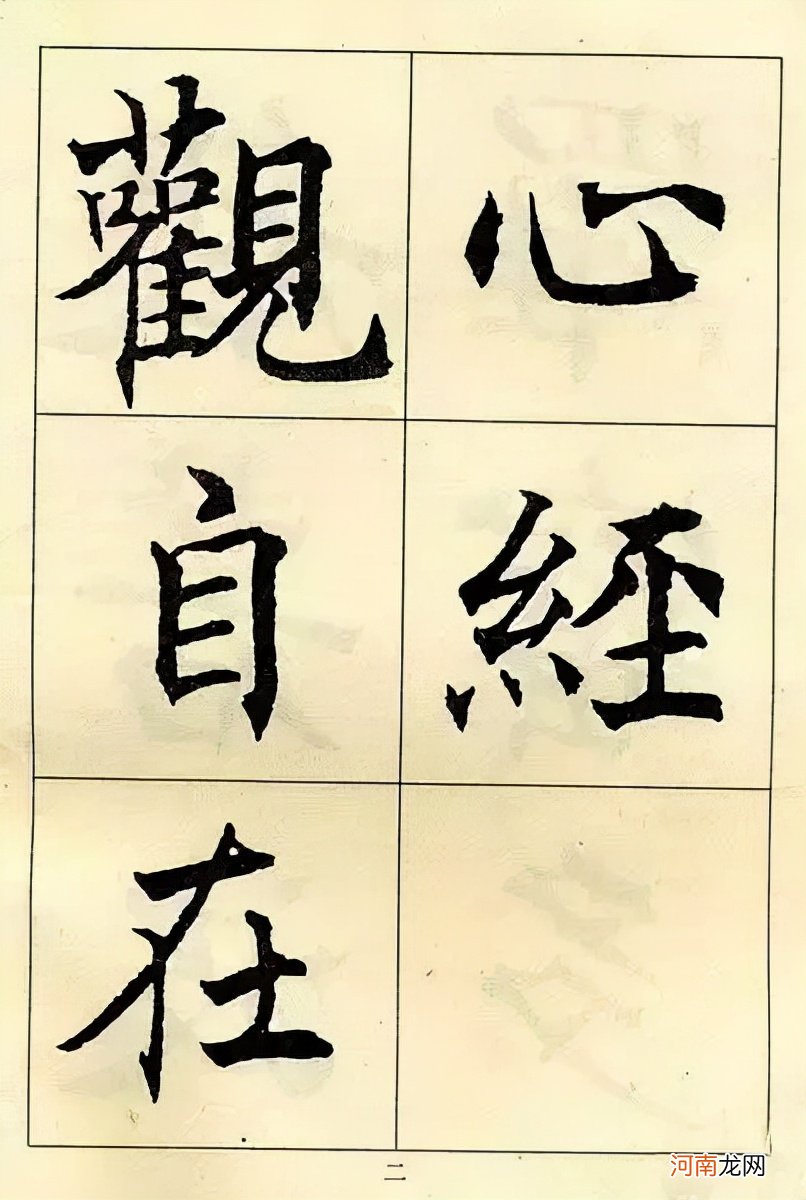 心經
觀自在
二
河南龙网